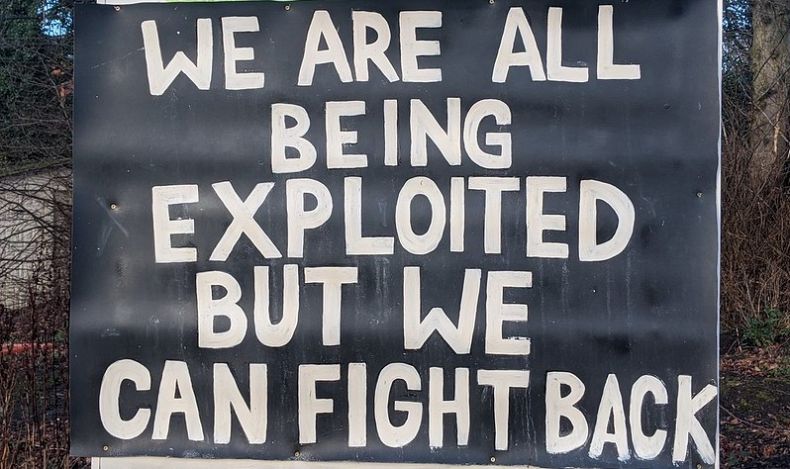 WE ARE ALL
BEING
EXPLOITED
BUT WE
CAN FIGHT BACK